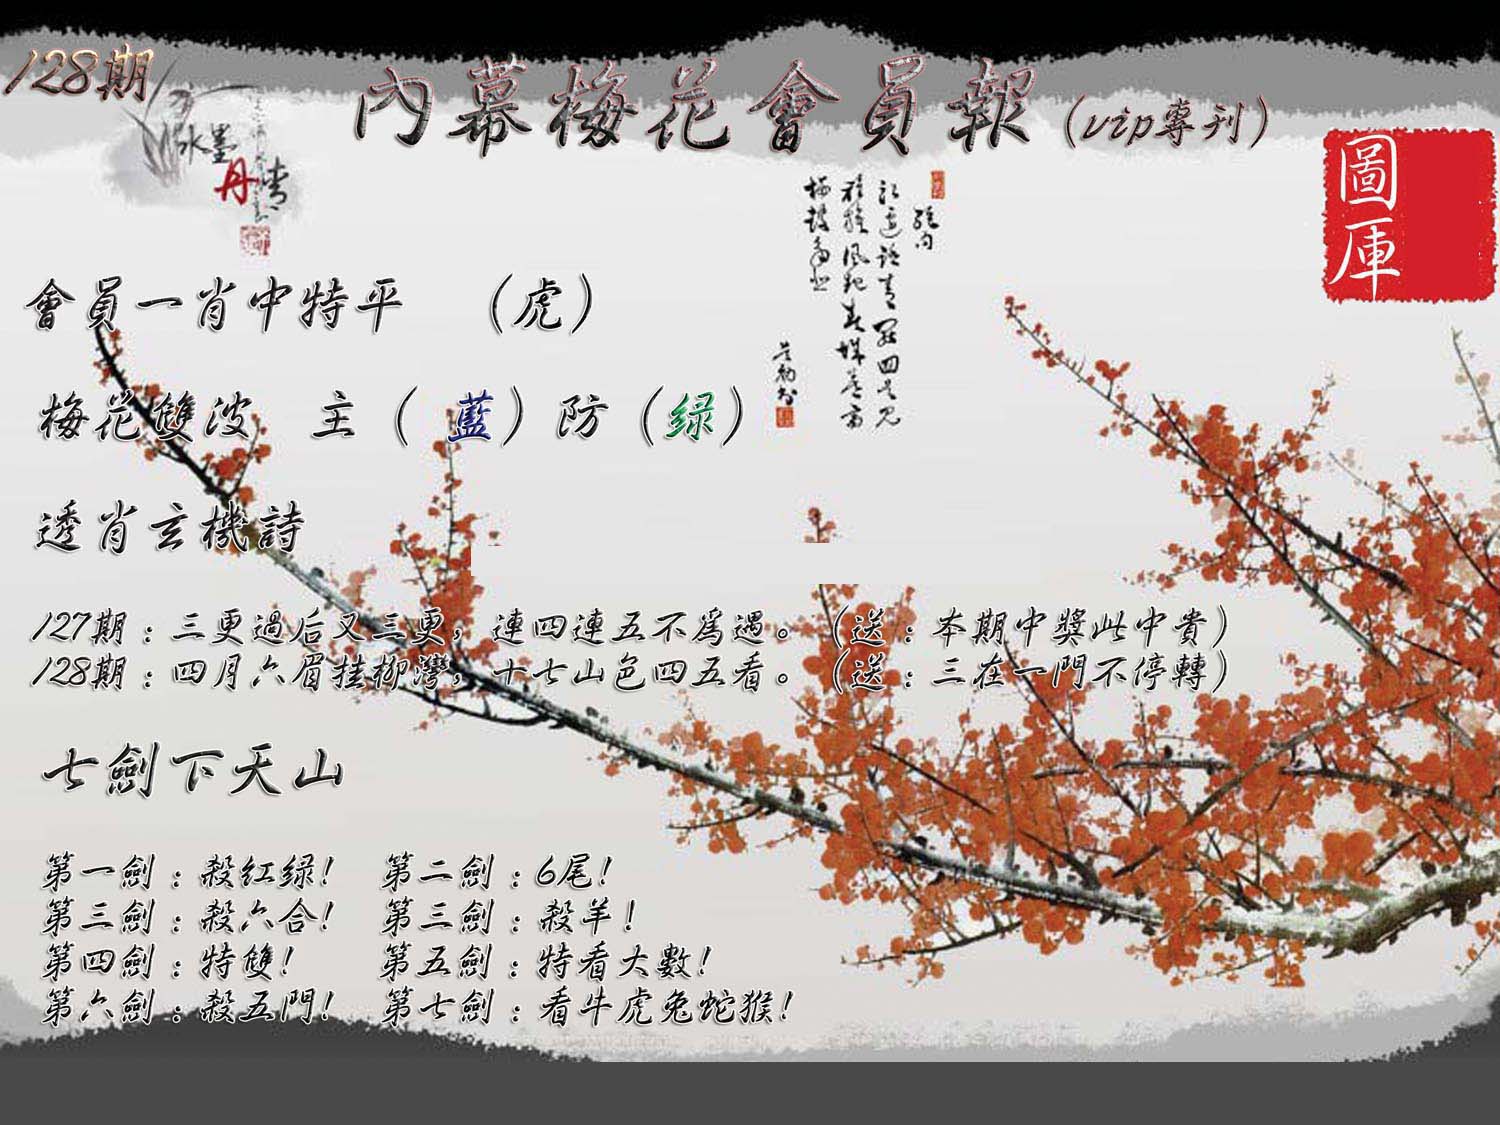 128期
內幕梅花會員報（vip專刊）
水墨
丹青
圖庫
會員一肖中特平　（虎）
梅花雙波　主（藍）防（绿）
透肖玄機詩
127期：三更過后又三更，連四連五不爲遇。（送：本期中獎此中貴）
128期：四月六眉挂柳灣，十七山色四五看。（送：三在一門不停轉）
七劍下天山
第一劍：殺红绿！　第二劍：6尾！
第三劍：殺六合！　第三劍：殺羊！
第四劍：特雙！　第五劍：特看大數！
第六劍：殺五門！　第七劍：看牛虎兔蛇猴！